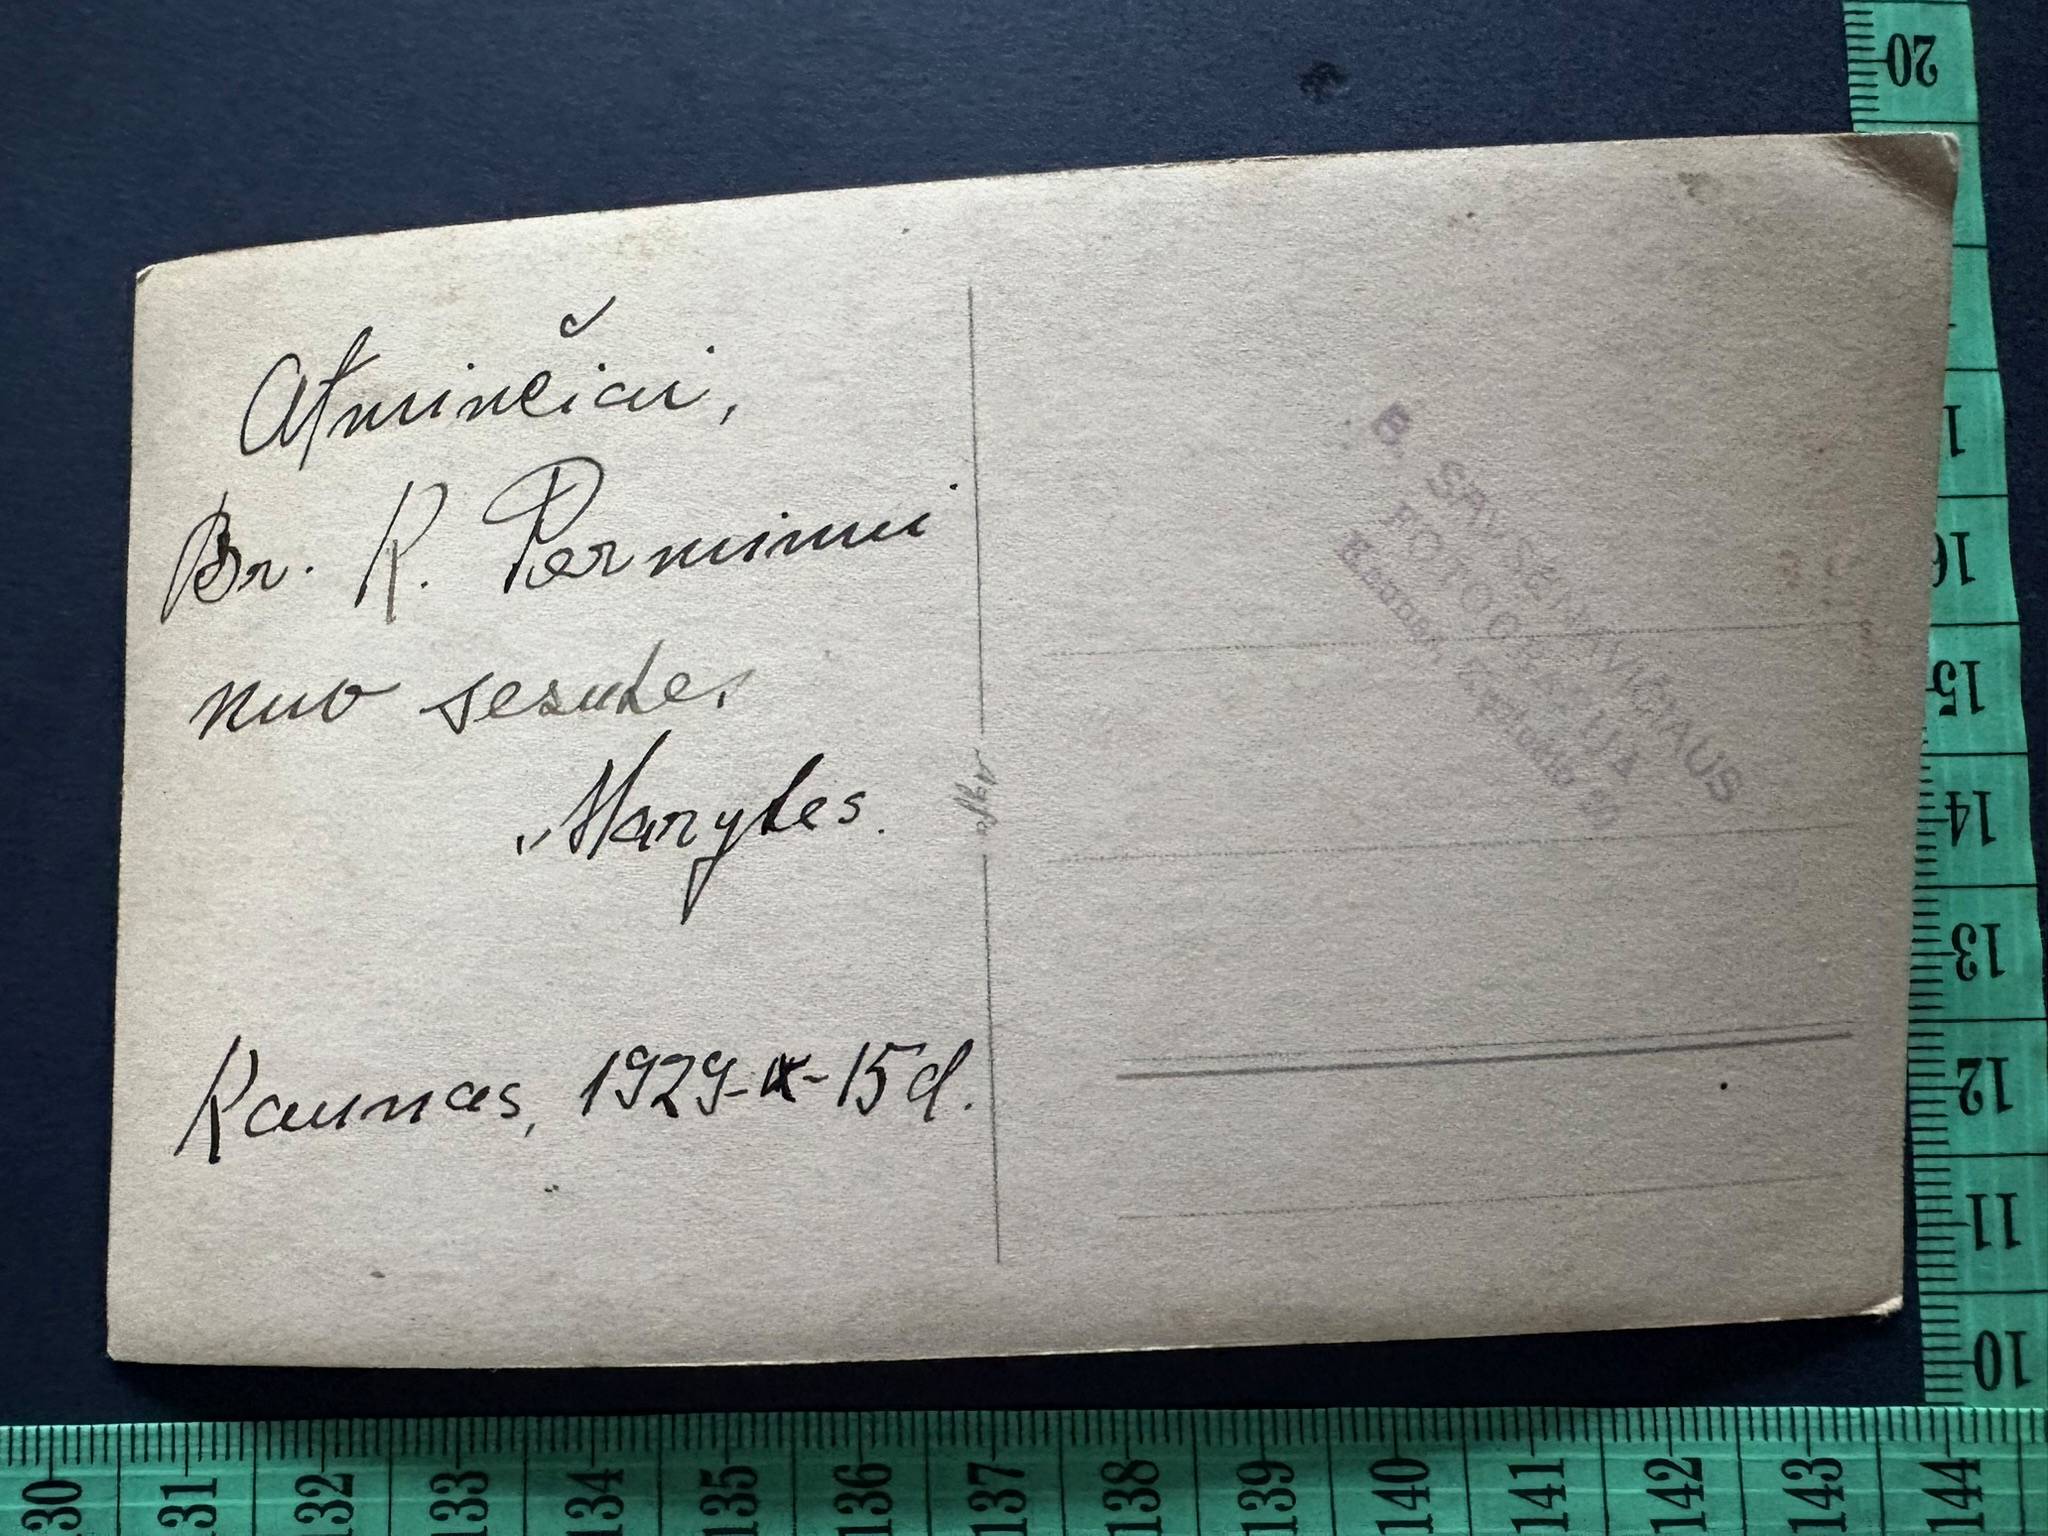 Atminčiai,
Br. R. Perminui
nuo sesutės
Marytes.
Kaunas, 1929-IX-15 d.
B. SAVSENAVIČIAUS
FOTOGRAFIJA
Kaunas,
20
16
15
14
13
12
11
10
130
131
132
133
134
135
136
137
138
139
140
141
142
143
144